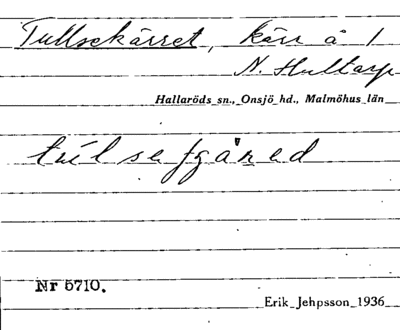 Tullsekärret, kärr å 1
N. Hultarp
Hallaröds sn., Onsjö hd., Malmöhus län
Nr 5710.
Erik Jehpsson 1936